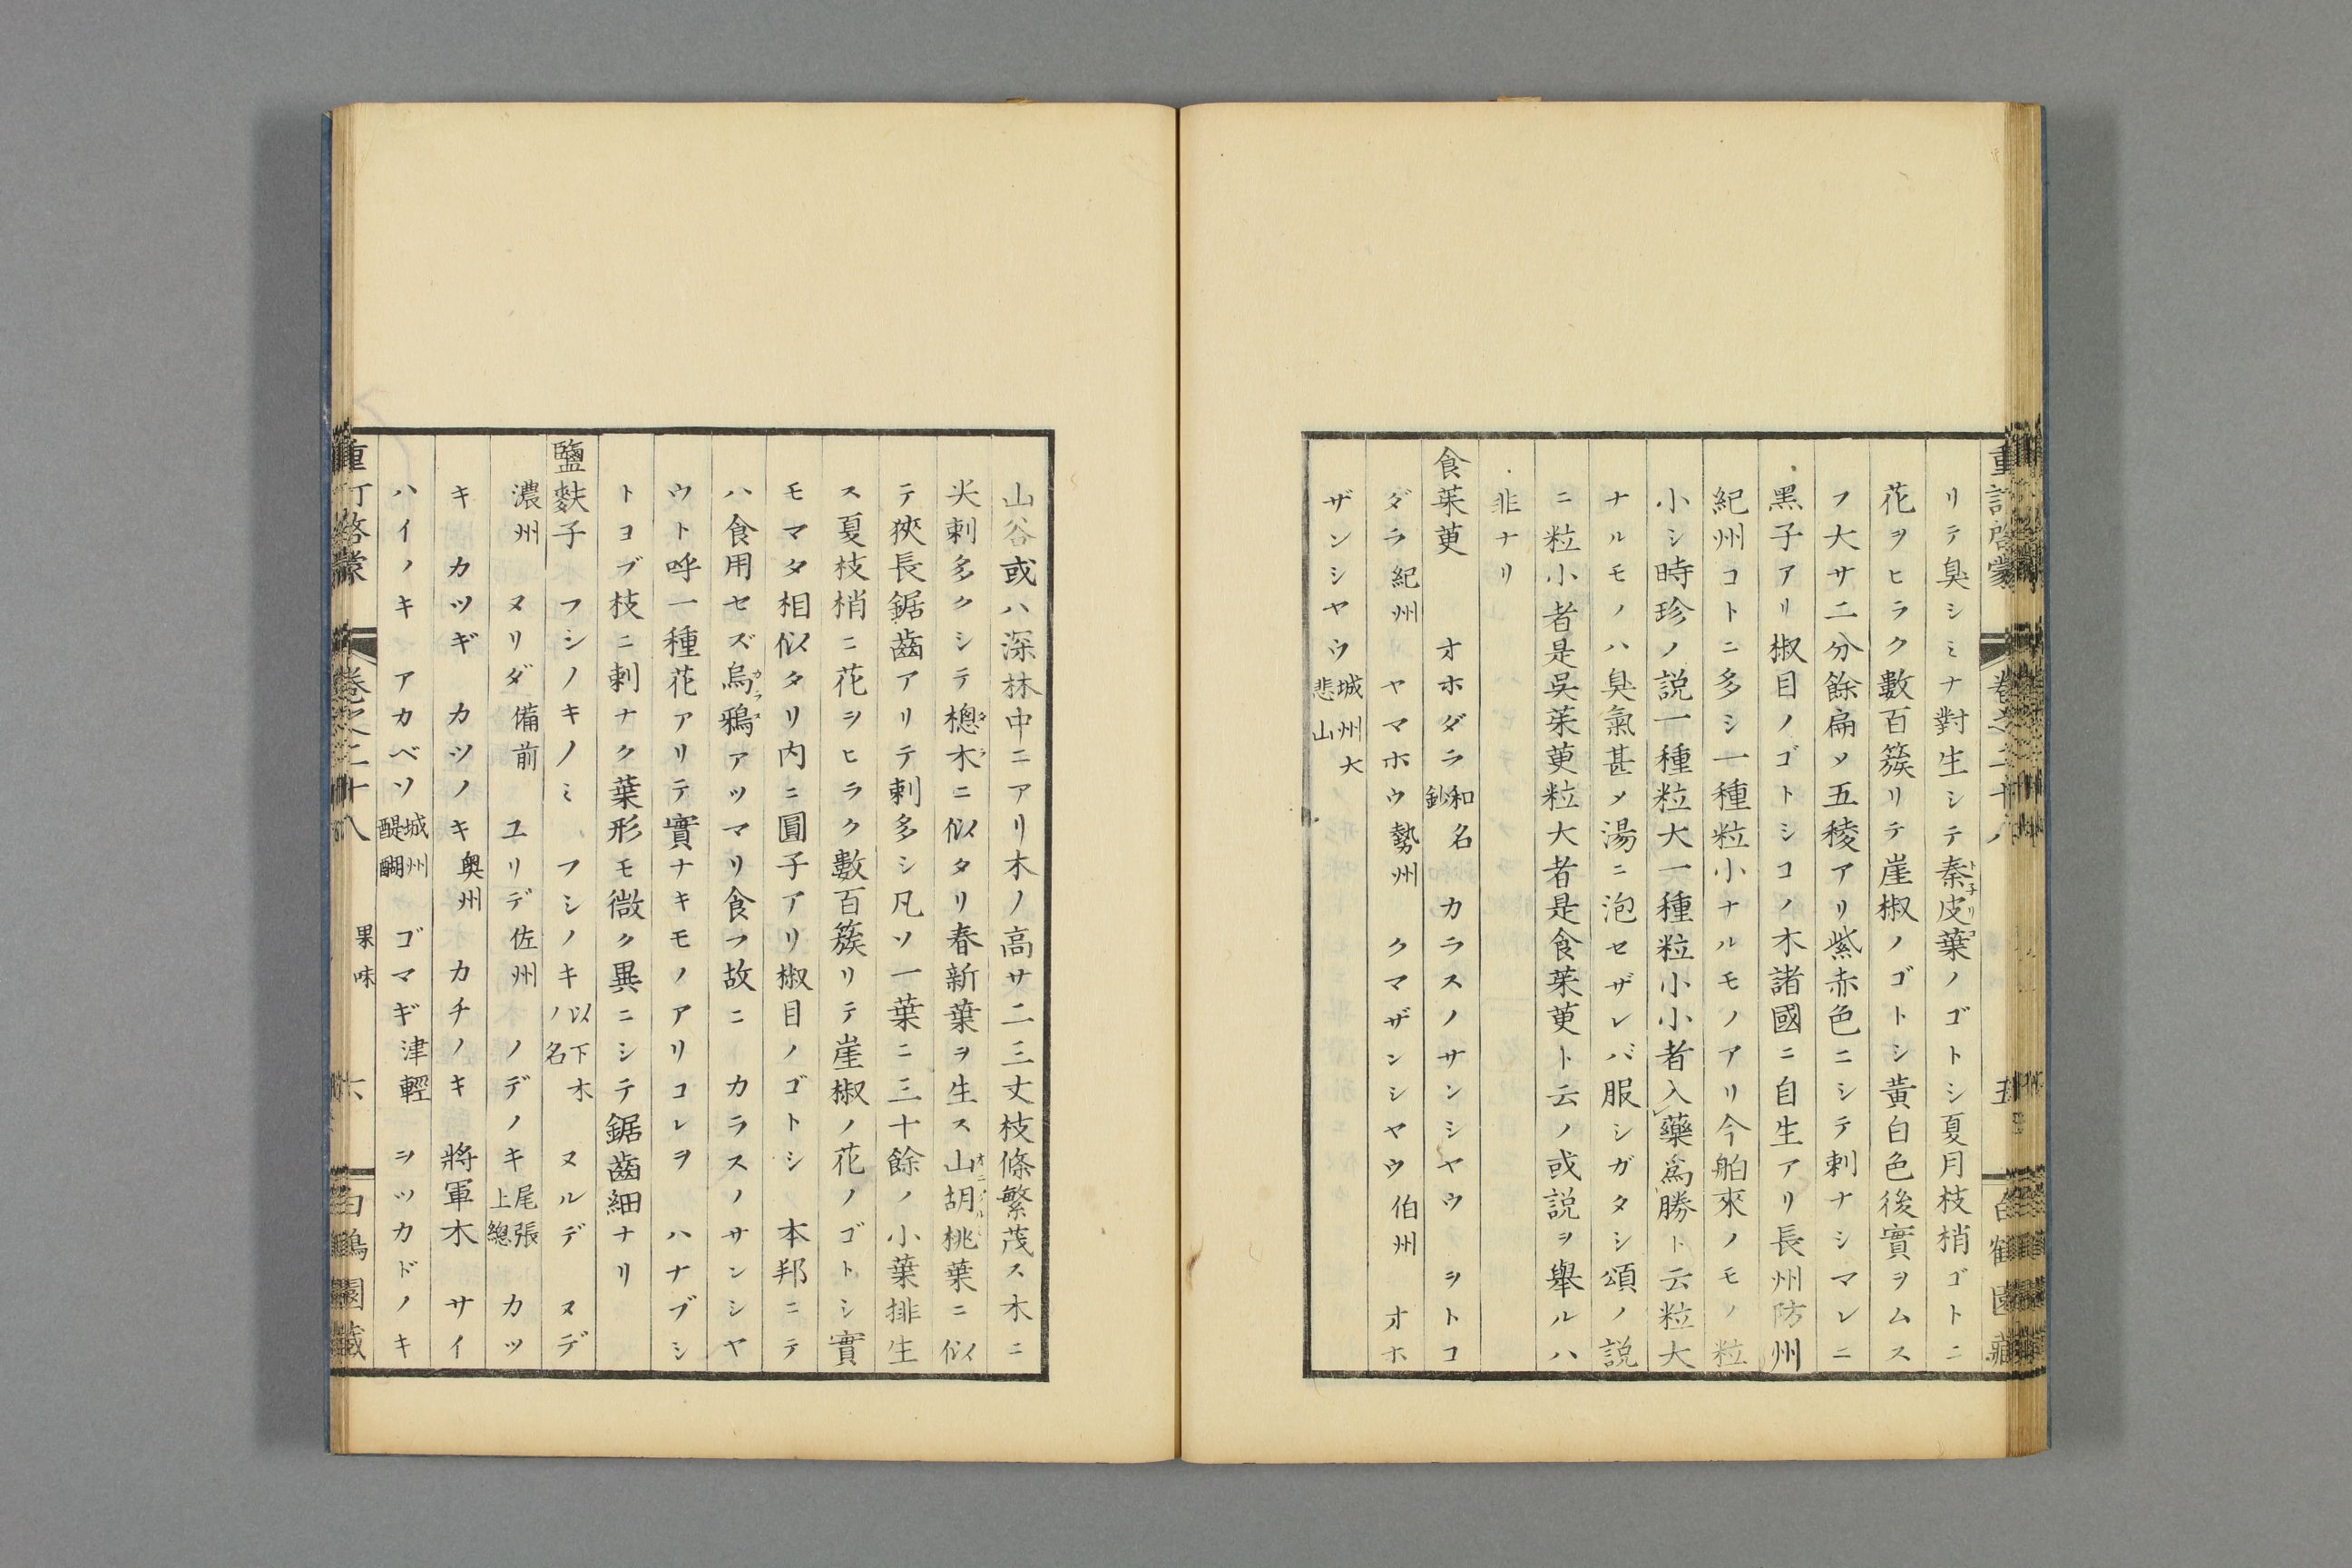 重訂啓蒙 卷之二十八 五 白鶴園藏
リテ臭シミナ對生シテ秦皮葉ノゴトシ夏月枝梢ゴトニ
花ヲヒラク數百簇リテ崖椒ノゴトシ黃白色後實ヲムス
フ大サ二分餘扁メ五稜アリ紫赤色ニシテ刺ナシマレニ
黑子アリ椒目ノゴトシコノ木諸國ニ自生アリ長州防州
紀州コトニ多シ一種粒小ナルモノアリ今舶來ノモノ粒
小シ時珍ノ説一種粒大一種粒小小者入藥爲勝ト云粒大
ナルモノハ臭氣甚メ湯ニ泡セザレバ服シガタシ頌ノ説
ニ粒小者是吳茱萸粒大者是食茱萸ト云ノ或説ヲ舉ルハ
非ナリ
食茱萸 オホダラ和名鈔 カラスノサンシヤウ ヲトコ
ダラ紀州 ヤマホウ勢州 クマザンシヤウ伯州 オホ
ザンシヤウ城州大悲山
山谷或ハ深林中ニアリ木ノ高サ二三丈枝條繁茂ス木ニ
尖刺多クシテ樬木ニ似タリ春新葉ヲ生ス山胡桃葉ニ似
テ狹長鋸齒アリテ刺多シ凡ソ一葉ニ三十餘ノ小葉排生
ス夏枝梢ニ花ヲヒラク數百簇リテ崖椒ノ花ノゴトシ實
モマタ相似タリ内ニ圓子アリ椒目ノゴトシ 本邦ニテ
ハ食用セズ烏鴉アツマリ食フ故ニ カラスノサンシヤ
ウト呼一種花アリテ實ナキモノアリコレヲ ハナブシ
トヨブ枝ニ刺ナク葉形モ微ク異ニシテ鋸齒細ナリ
鹽麩子 フシノキノミ フシノキ以下木ノ名 ヌルデ ヌデ
濃州 ヌリダ備前 ユリデ佐州 ノデノキ尾張上總 カツ
キ カツギ カツノキ奥州 カチノキ 將軍木 サイ
ハイノキ アカベソ城州醍醐 ゴマギ津輕 ヲツカドノキ
重訂啓蒙 卷之二十八 果味 六 白鶴園藏